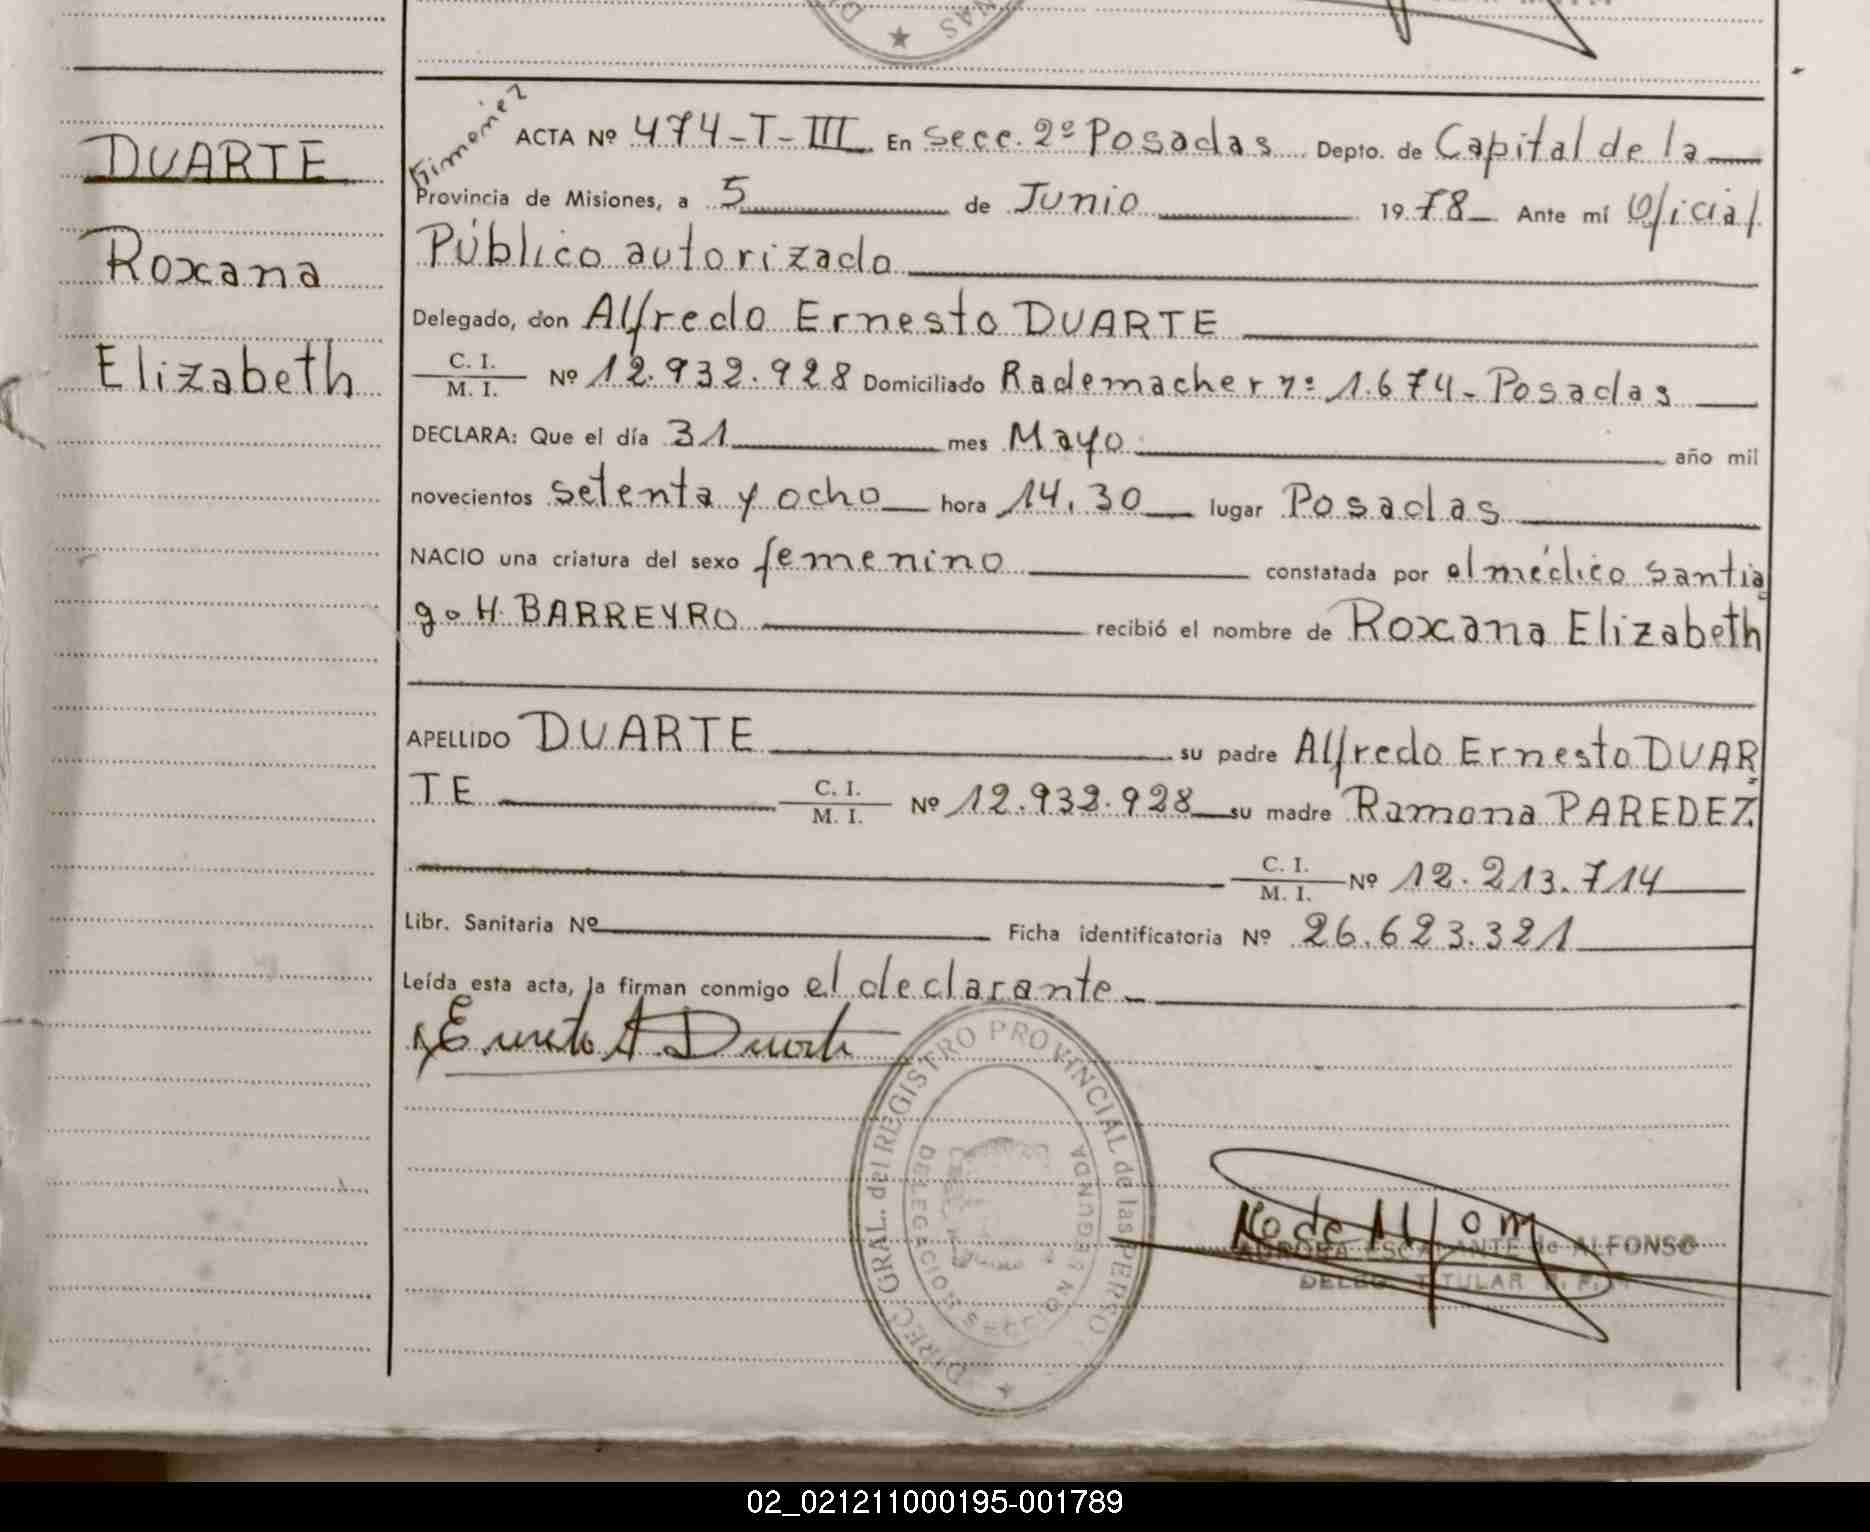 NAS
D
DUARTE
Roxana
Elizabeth
Gimenez
ACTA Nº 474-T-III En Secc. 2º Posadas Depto. de Capital de la
Provincia de Misiones, a 5 de Junio 1978 Ante mí Oficial
Público autorizado
Delegado, don Alfredo Ernesto DUARTE
C. I.
M. I. Nº 12.932.928 Domiciliado Rademacher nº 1.674- Posadas
DECLARA: Que el día 31 mes Mayo año mil
novecientos setenta y ocho hora 14.30 lugar Posadas
NACIO una criatura del sexo femenino constatada por el médico Santia
go H. BARREYRO recibió el nombre de Roxana Elizabeth
APELLIDO DUARTE su padre Alfredo Ernesto DUAR
TE C. I.
M. I. Nº 12.932.928 su madre Ramona PAREDEZ
C. I.
M. I. Nº 12.213.714
Libr. Sanitaria Nº Ficha identificatoria Nº 26.623.321
Leída esta acta, la firman conmigo el declarante
Ernesto A Duarte
DIREC. GRAL. del REGISTRO PROVINCIAL de las PERSO
DELEGACION SECCION SEGUNDA
AURORA ESCALANTE de ALFONSO
DELEG. TITULAR
02_021211000195-001789